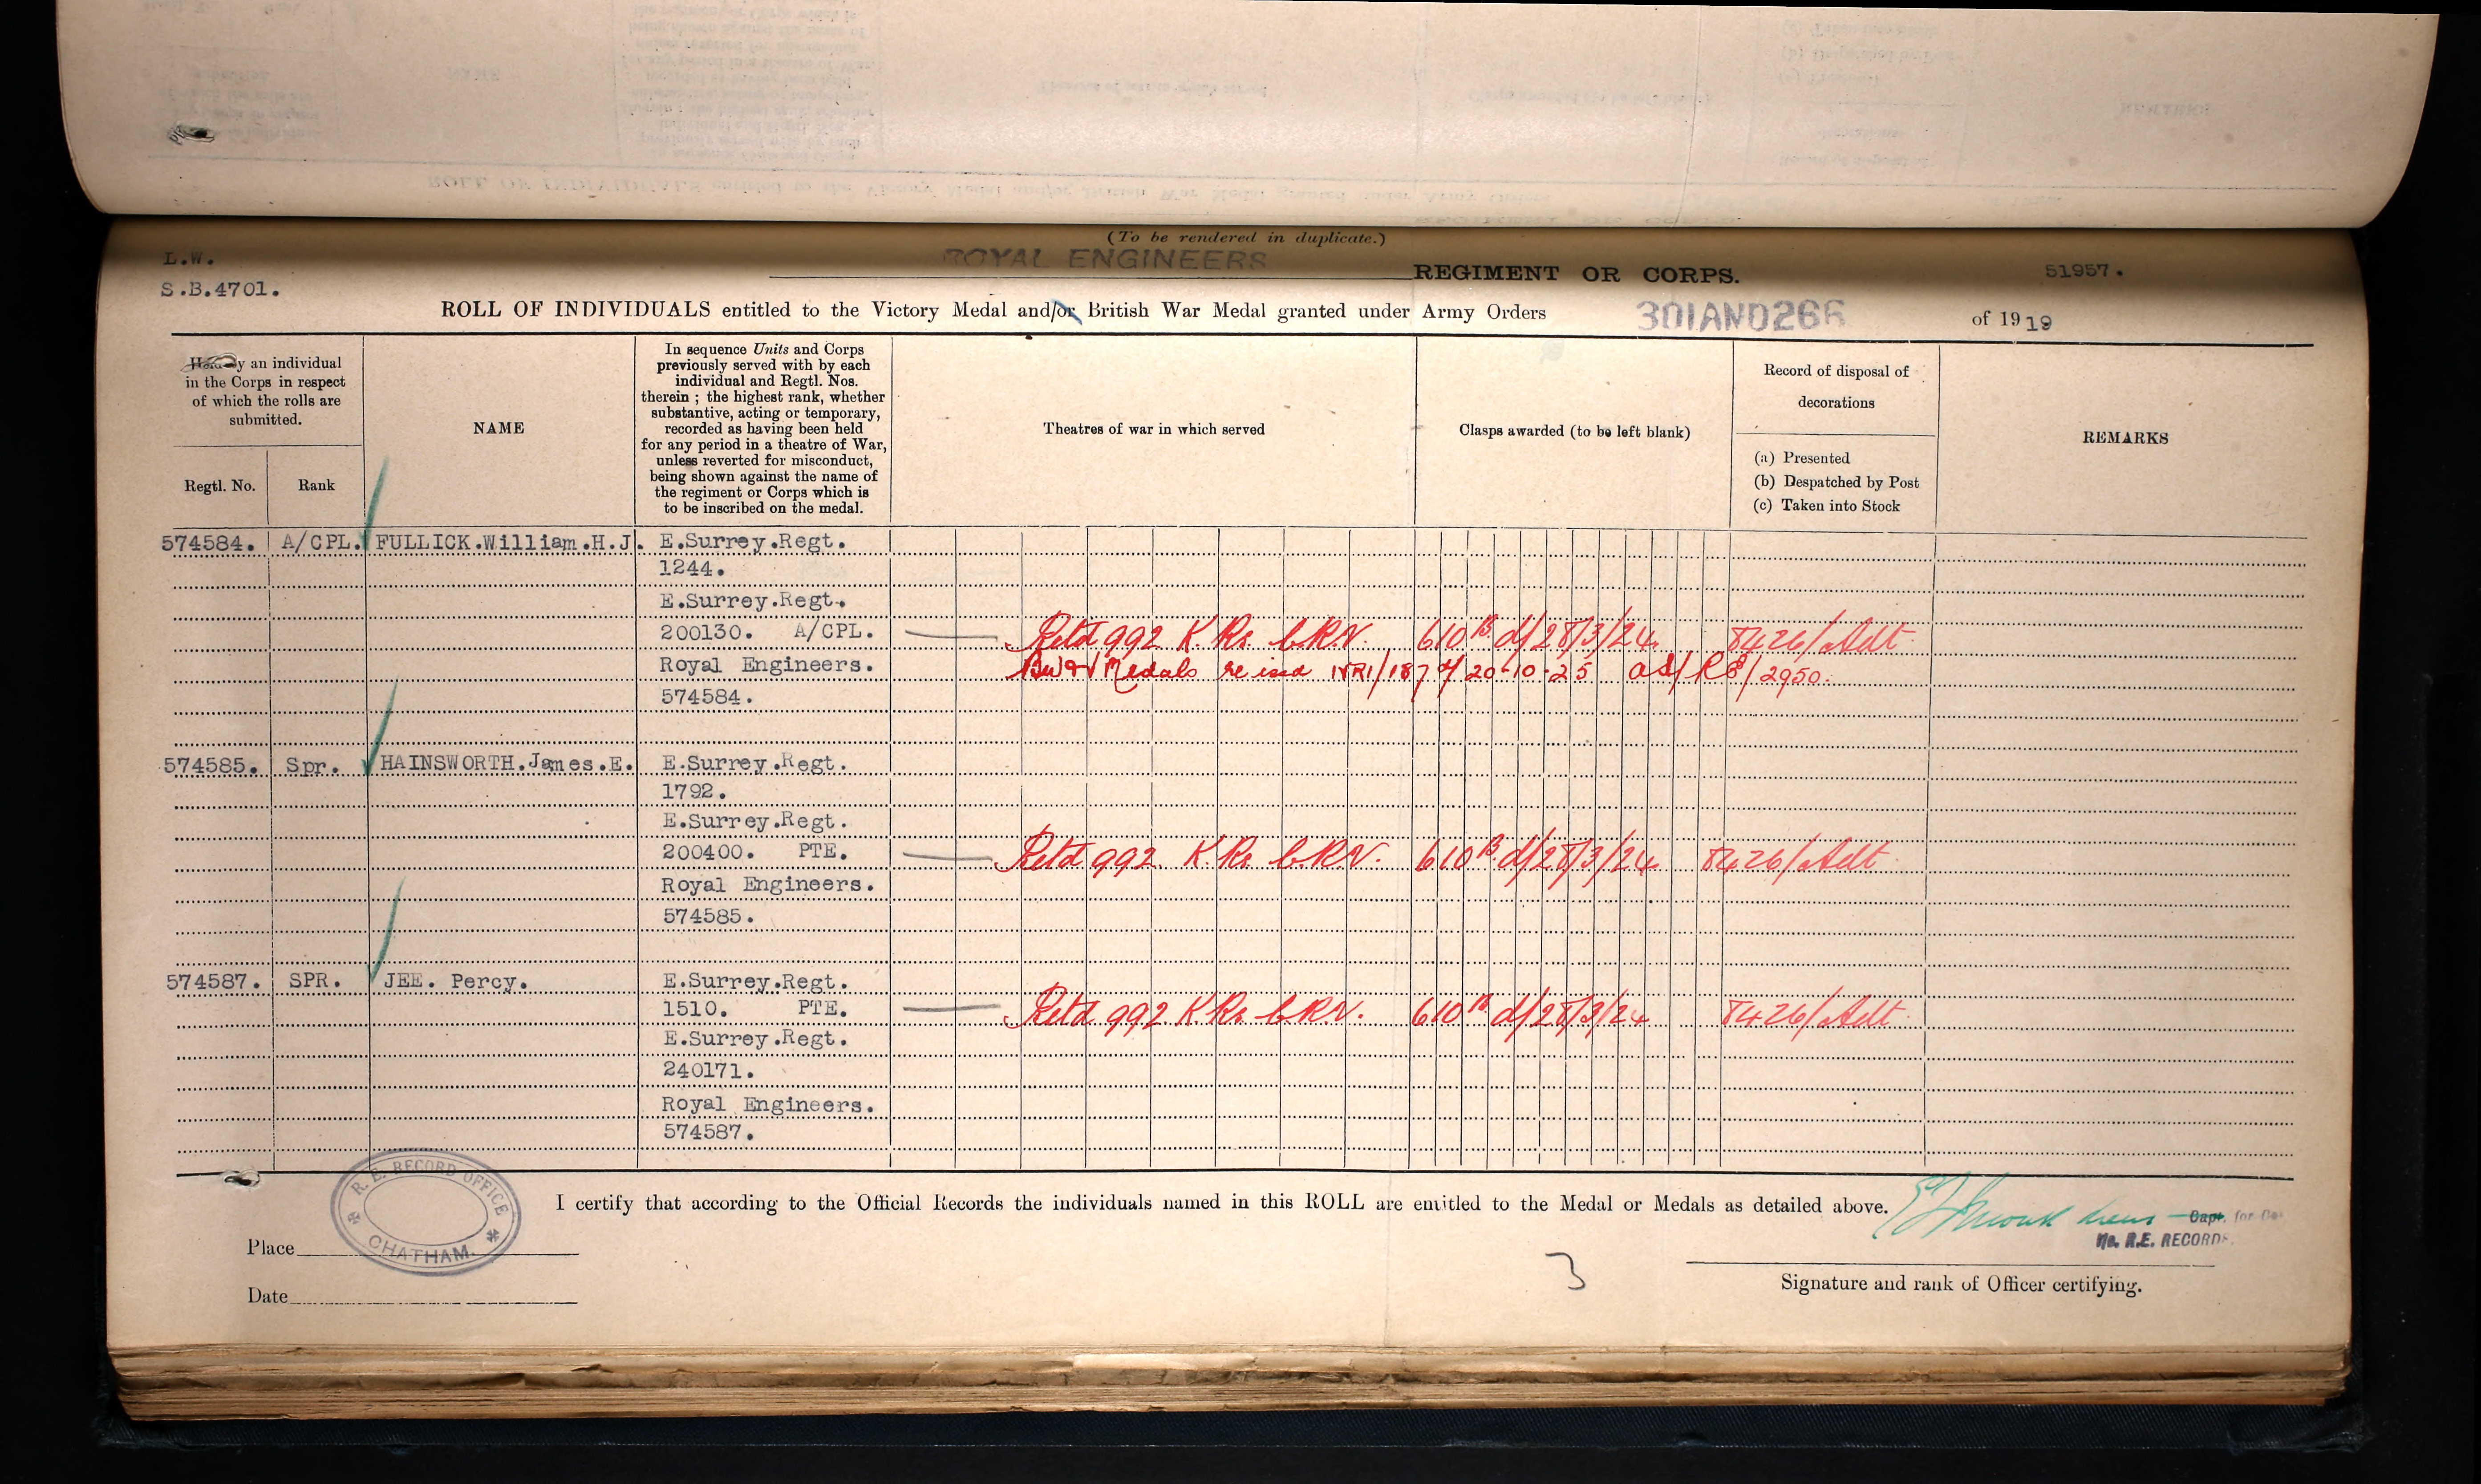 (To be rendered in duplicate.)
L.W.
ROYAL ENGINEERS REGIMENT OR CORPS. 51957.
S.B.4701.
ROLL OF INDIVIDUALS entitled to the Victory Medal and/or British War Medal granted under Army Orders 301AND266 of 1919
y an individual in the Corps in respect of which the rolls are submitted.
Regtl. No.
Rank
NAME
In sequence Units and Corps
previously served with by each
individual and Regtl. Nos.
therein ; the highest rank, whether
substantive, acting or temporary,
recorded as having been held
for any period in a theatre of War,
unless reverted for misconduct,
being shown against the name of
the regiment or Corps which is
to be inscribed on the medal.
Theatres of war in which served
Clasps awarded (to be left blank)
Record of disposal of
decorations
(a) Presented
(b) Despatched by Post
(c) Taken into Stock
REMARKS
574584. A/CPL. FULLICK.William.H.J. E.Surrey.Regt.
1244.
E.Surrey.Regt.
200130. A/CPL. Retd 992 K.Rs. 610 d/28/3/24 8426/Adt
Royal Engineers. Medals 20-10-25 /2950.
574584.
574585. Spr. HAINSWORTH.James.E. E.Surrey.Regt.
1792.
E.Surrey.Regt.
200400. PTE. Retd 992 K.Rs. 610 d/28/3/24 8426/Adt
Royal Engineers.
574585.
574587. SPR. JEE. Percy. E.Surrey.Regt.
1510. PTE. Retd 992 K.Rs. 610 d/28/3/24 8426/Adt
E.Surrey.Regt.
240171.
Royal Engineers.
574587.
R. E. RECORD OFFICE
CHATHAM.
I certify that according to the Official Records the individuals named in this ROLL are entitled to the Medal or Medals as detailed above.
Capt. for
R.E. RECORDS.
Place
3
Signature and rank of Officer certifying.
Date